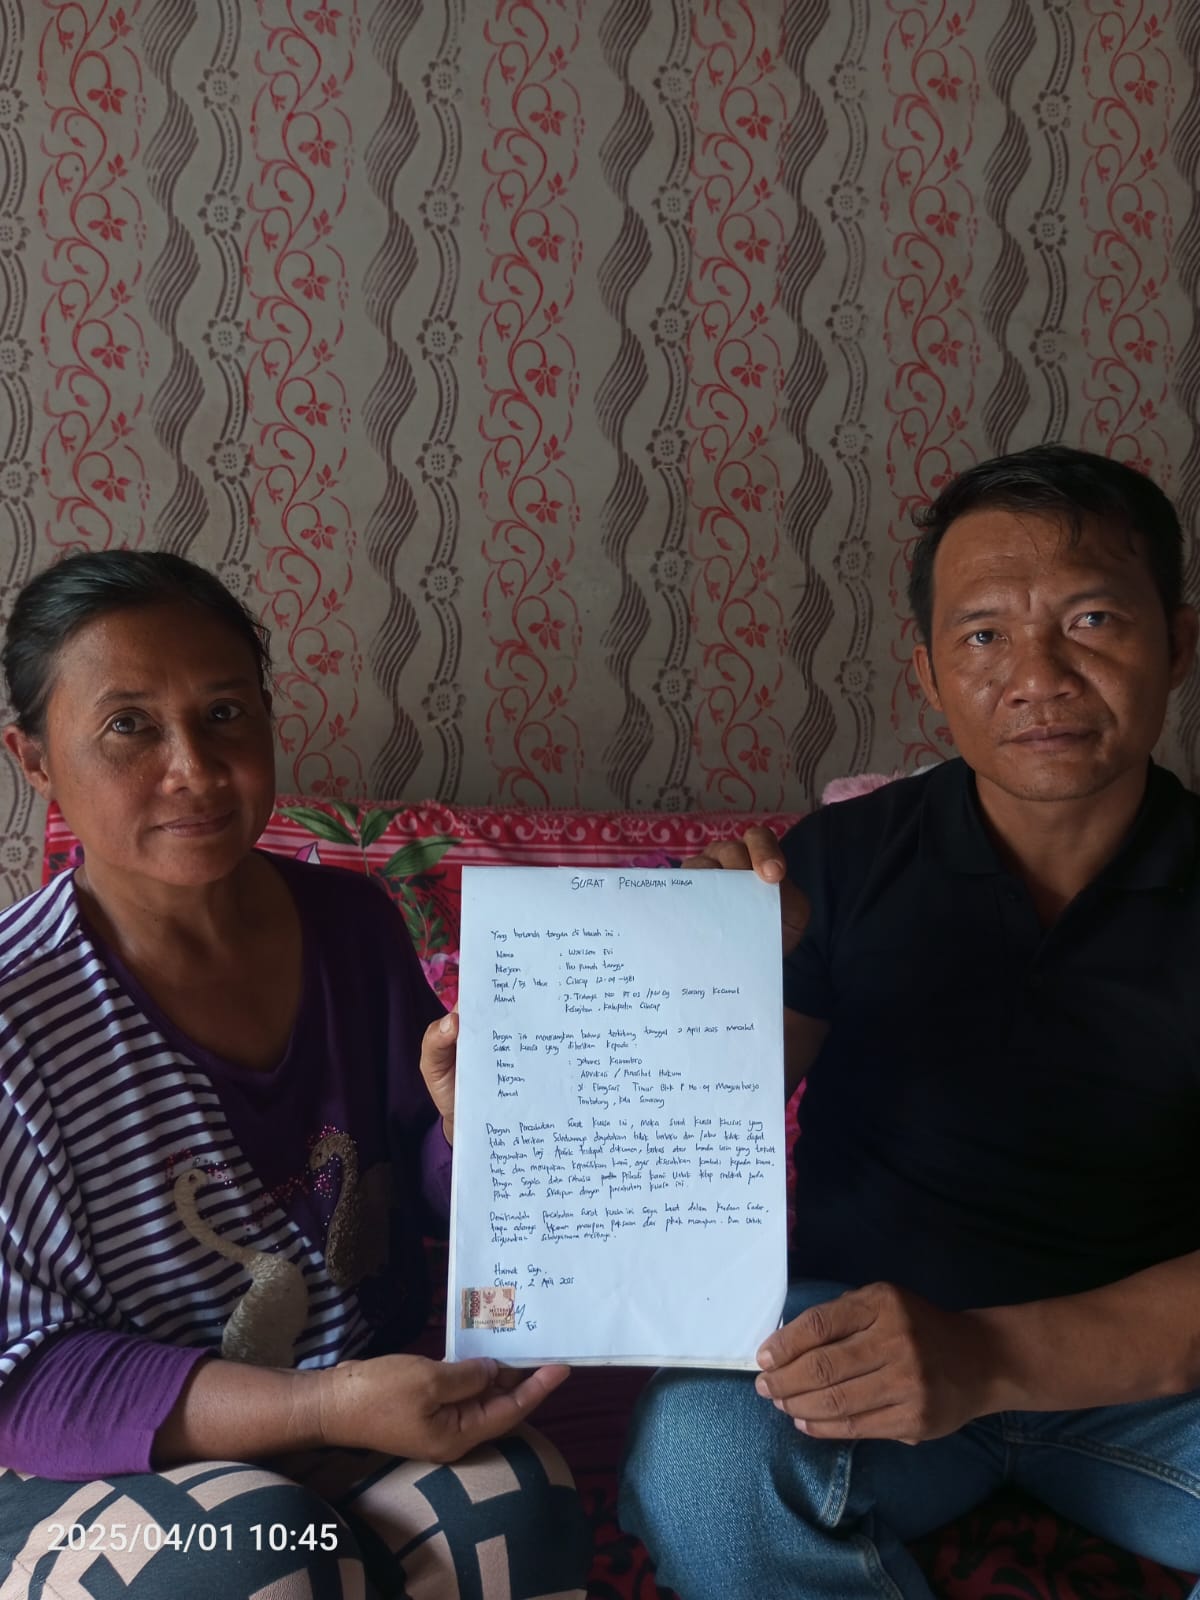 SURAT PENCABUTAN KUASA
Yang bertanda tangan di bawah ini :
Nama : Warisem Evi
Pekerjaan : Ibu rumah tangga
Tempat / Tgl lahir : Cilacap 12-04-1981
Alamat : Jl. No RT 03 / RW 04 Slarang Kecamat
Kesugihan . Kabupatin Cilacap
Dengan ini menerangkan bahwa terhitung tanggal 2 April 2025 mencabut
surat kuasa yang diberikan kepada :
Nama : Kuntoro
Pekerjaan : Advokasi / Penasihat Hukum
Alamat : Jl Timur Blok P No. 04 Mangunharjo
Tembalang, Kota Semarang
Dengan Pencabutan Surat Kuasa ini, maka surat kuasa khusus yang
telah diberikan Sebelumnya dinyatakan tidak berlaku dan /atau tidak dapat
dipergunakan lagi. Apabila terdapat dokumen, berkas atau benda lain yang terkait
hak dan merupakan kepemilikan kami, agar diserahkan kembali kepada kami.
Dengan Segala data rahasia Pribadi kami Untuk tetap melekat pada
Pihak anda Meskipun dengan pencabutan kuasa ini.
Demikianlah Pencabutan Surat kuasa ini Saya buat dalam keadaan Sadar,
tanpa adanya tekanan maupun Paksaan dari pihak manapun. Dan Untuk
digunakan Sebagaimana mestinya.
Hormat Saya.
Cilacap, 2 April 2025
10000
METERAI
TEMPEL
Warisem Evi
2025/04/01 10:45